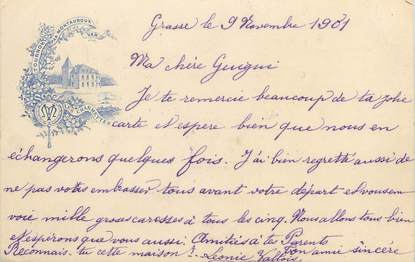 Grasse le 9 Novembre 1901
TOURNON MONTAUROUX
VAR
Ma chère Guigui
Je te remercie beaucoup de ta jolie
carte et espère bien que nous en
échangerons quelques fois. J'ai bien regretté aussi de
ne pas vous embrasser tous avant votre départ et vous en
voie mille grosses caresses à tous les cinq. Nous allons tous bien
et espérons que vous aussi. Amitiés à tes Parents
Ton amie sincère
Reconnais-tu cette maison? Léonie